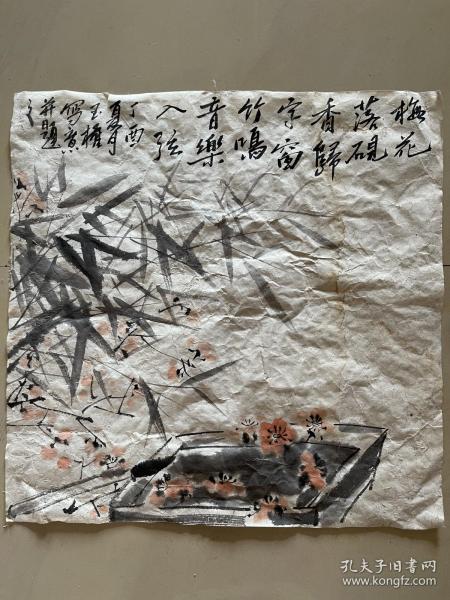 梅花
落硯
香歸
字窗
竹鳴
音樂
入弦
丁酉
夏月
玉樵
寫意
并題
之
孔夫子旧书网
www.kongfz.com